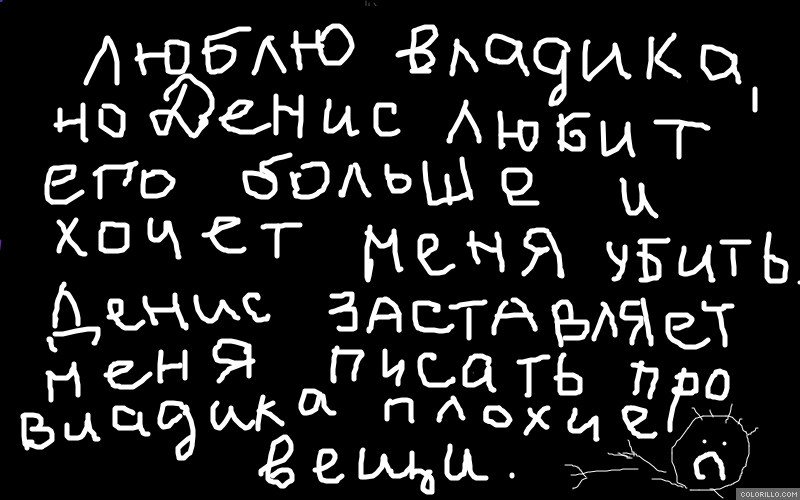 люблю владика,
но Денис любит
его больше и
хочет меня убить.
Денис заставляет
меня писать про
владика плохие
вещи.
COLORILLO.COM